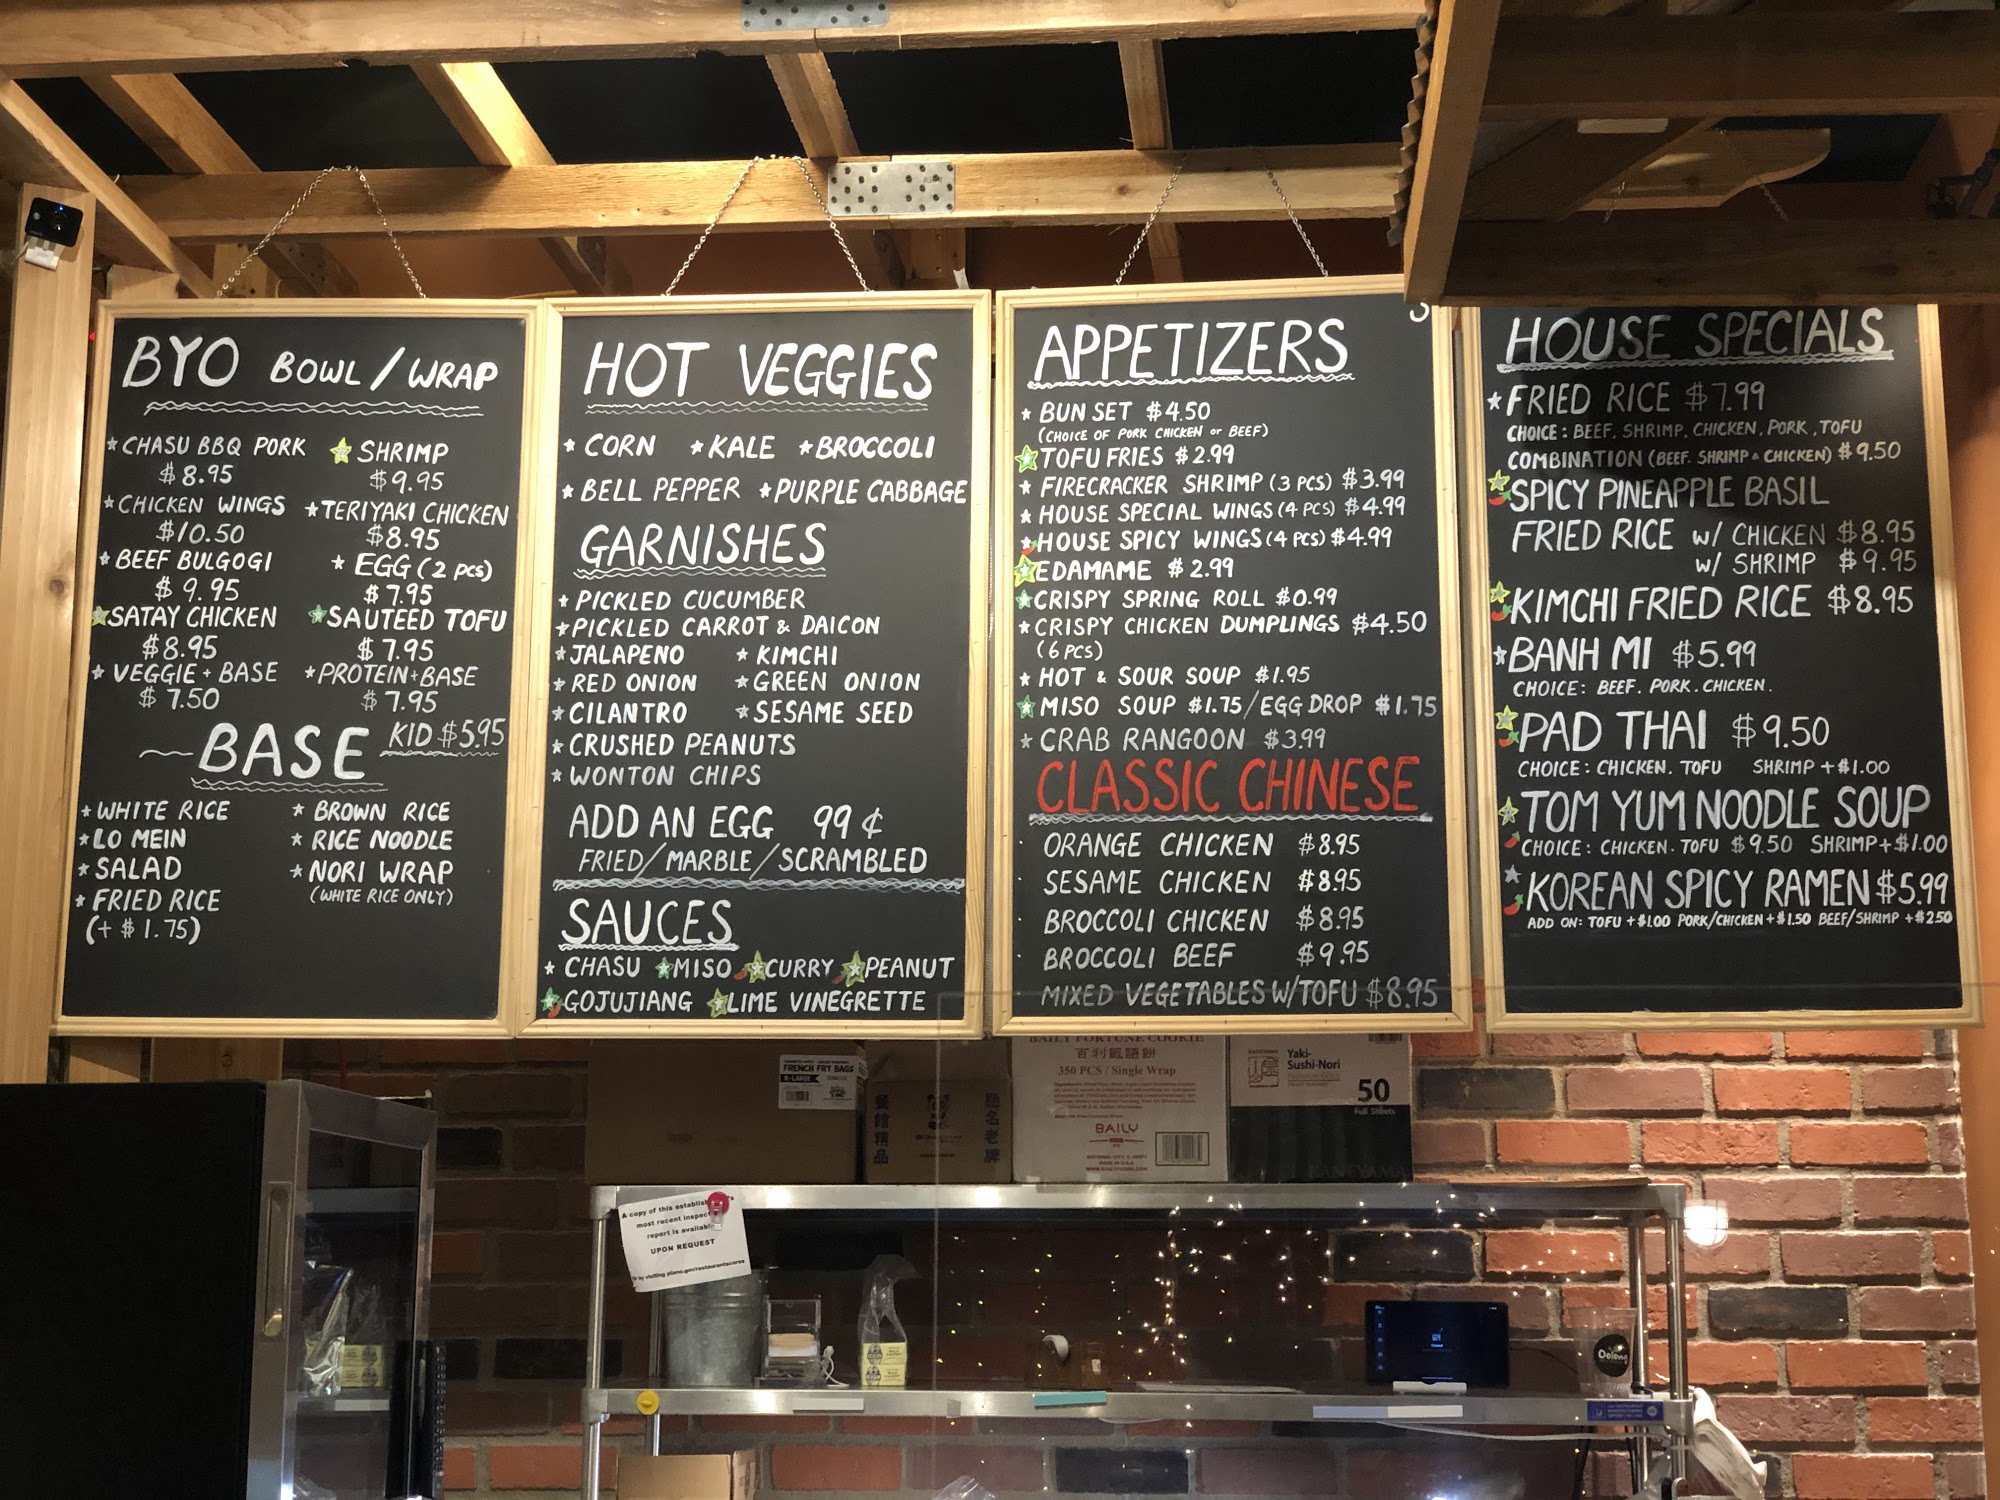 BYO BOWL / WRAP
CHASU BBQ PORK
$8.95
CHICKEN WINGS
$10.50
BEEF BULGOGI
$9.95
SATAY CHICKEN
$8.95
VEGGIE + BASE
$7.50
SHRIMP
$9.95
TERIYAKI CHICKEN
$8.95
EGG (2 pcs)
$7.95
SAUTEED TOFU
$7.95
PROTEIN+BASE
$7.95
KID $5.95
BASE
WHITE RICE
LO MEIN
SALAD
FRIED RICE
(+ $1.75)
BROWN RICE
RICE NOODLE
NORI WRAP
(WHITE RICE ONLY)
HOT VEGGIES
CORN KALE BROCCOLI
BELL PEPPER PURPLE CABBAGE
GARNISHES
PICKLED CUCUMBER
PICKLED CARROT & DAICON
JALAPENO KIMCHI
RED ONION GREEN ONION
CILANTRO SESAME SEED
CRUSHED PEANUTS
WONTON CHIPS
ADD AN EGG 99 ¢
FRIED/MARBLE/SCRAMBLED
SAUCES
CHASU MISO CURRY PEANUT
GOJUJIANG LIME VINEGRETTE
APPETIZERS
BUN SET $4.50
(CHOICE OF PORK CHICKEN or BEEF)
TOFU FRIES $2.99
FIRECRACKER SHRIMP (3 PCS) $3.99
HOUSE SPECIAL WINGS (4 PCS) $4.99
HOUSE SPICY WINGS (4 PCS) $4.99
EDAMAME $2.99
CRISPY SPRING ROLL $0.99
CRISPY CHICKEN DUMPLINGS $4.50
(6 PCS)
HOT & SOUR SOUP $1.95
MISO SOUP $1.75/EGG DROP $1.75
CRAB RANGOON $3.99
CLASSIC CHINESE
ORANGE CHICKEN $8.95
SESAME CHICKEN $8.95
BROCCOLI CHICKEN $8.95
BROCCOLI BEEF $9.95
MIXED VEGETABLES W/TOFU $8.95
HOUSE SPECIALS
FRIED RICE $7.99
CHOICE: BEEF, SHRIMP, CHICKEN, PORK, TOFU
COMBINATION (BEEF. SHRIMP & CHICKEN) $9.50
SPICY PINEAPPLE BASIL
FRIED RICE W/ CHICKEN $8.95
W/ SHRIMP $9.95
KIMCHI FRIED RICE $8.95
BANH MI $5.99
CHOICE: BEEF. PORK. CHICKEN.
PAD THAI $9.50
CHOICE: CHICKEN. TOFU SHRIMP +$1.00
TOM YUM NOODLE SOUP
CHOICE: CHICKEN. TOFU $9.50 SHRIMP+$1.00
KOREAN SPICY RAMEN $5.99
ADD ON: TOFU +$1.00 PORK/CHICKEN +$1.50 BEEF/SHRIMP +$2.50
FRENCH FRY BAGS
X-LARGE
餐館精品
馳名老牌
BAILY FORTUNE COOKIE
百利籤語餅
350 PCS / Single Wrap
BAILY
MADE IN U.S.A.
Yaki-
Sushi-Nori
50
Full Sheets
KANEYAMA
A copy of this
most recent
report is
UPON REQUEST
Or by visiting plano.gov/restaurantscores
Oolong